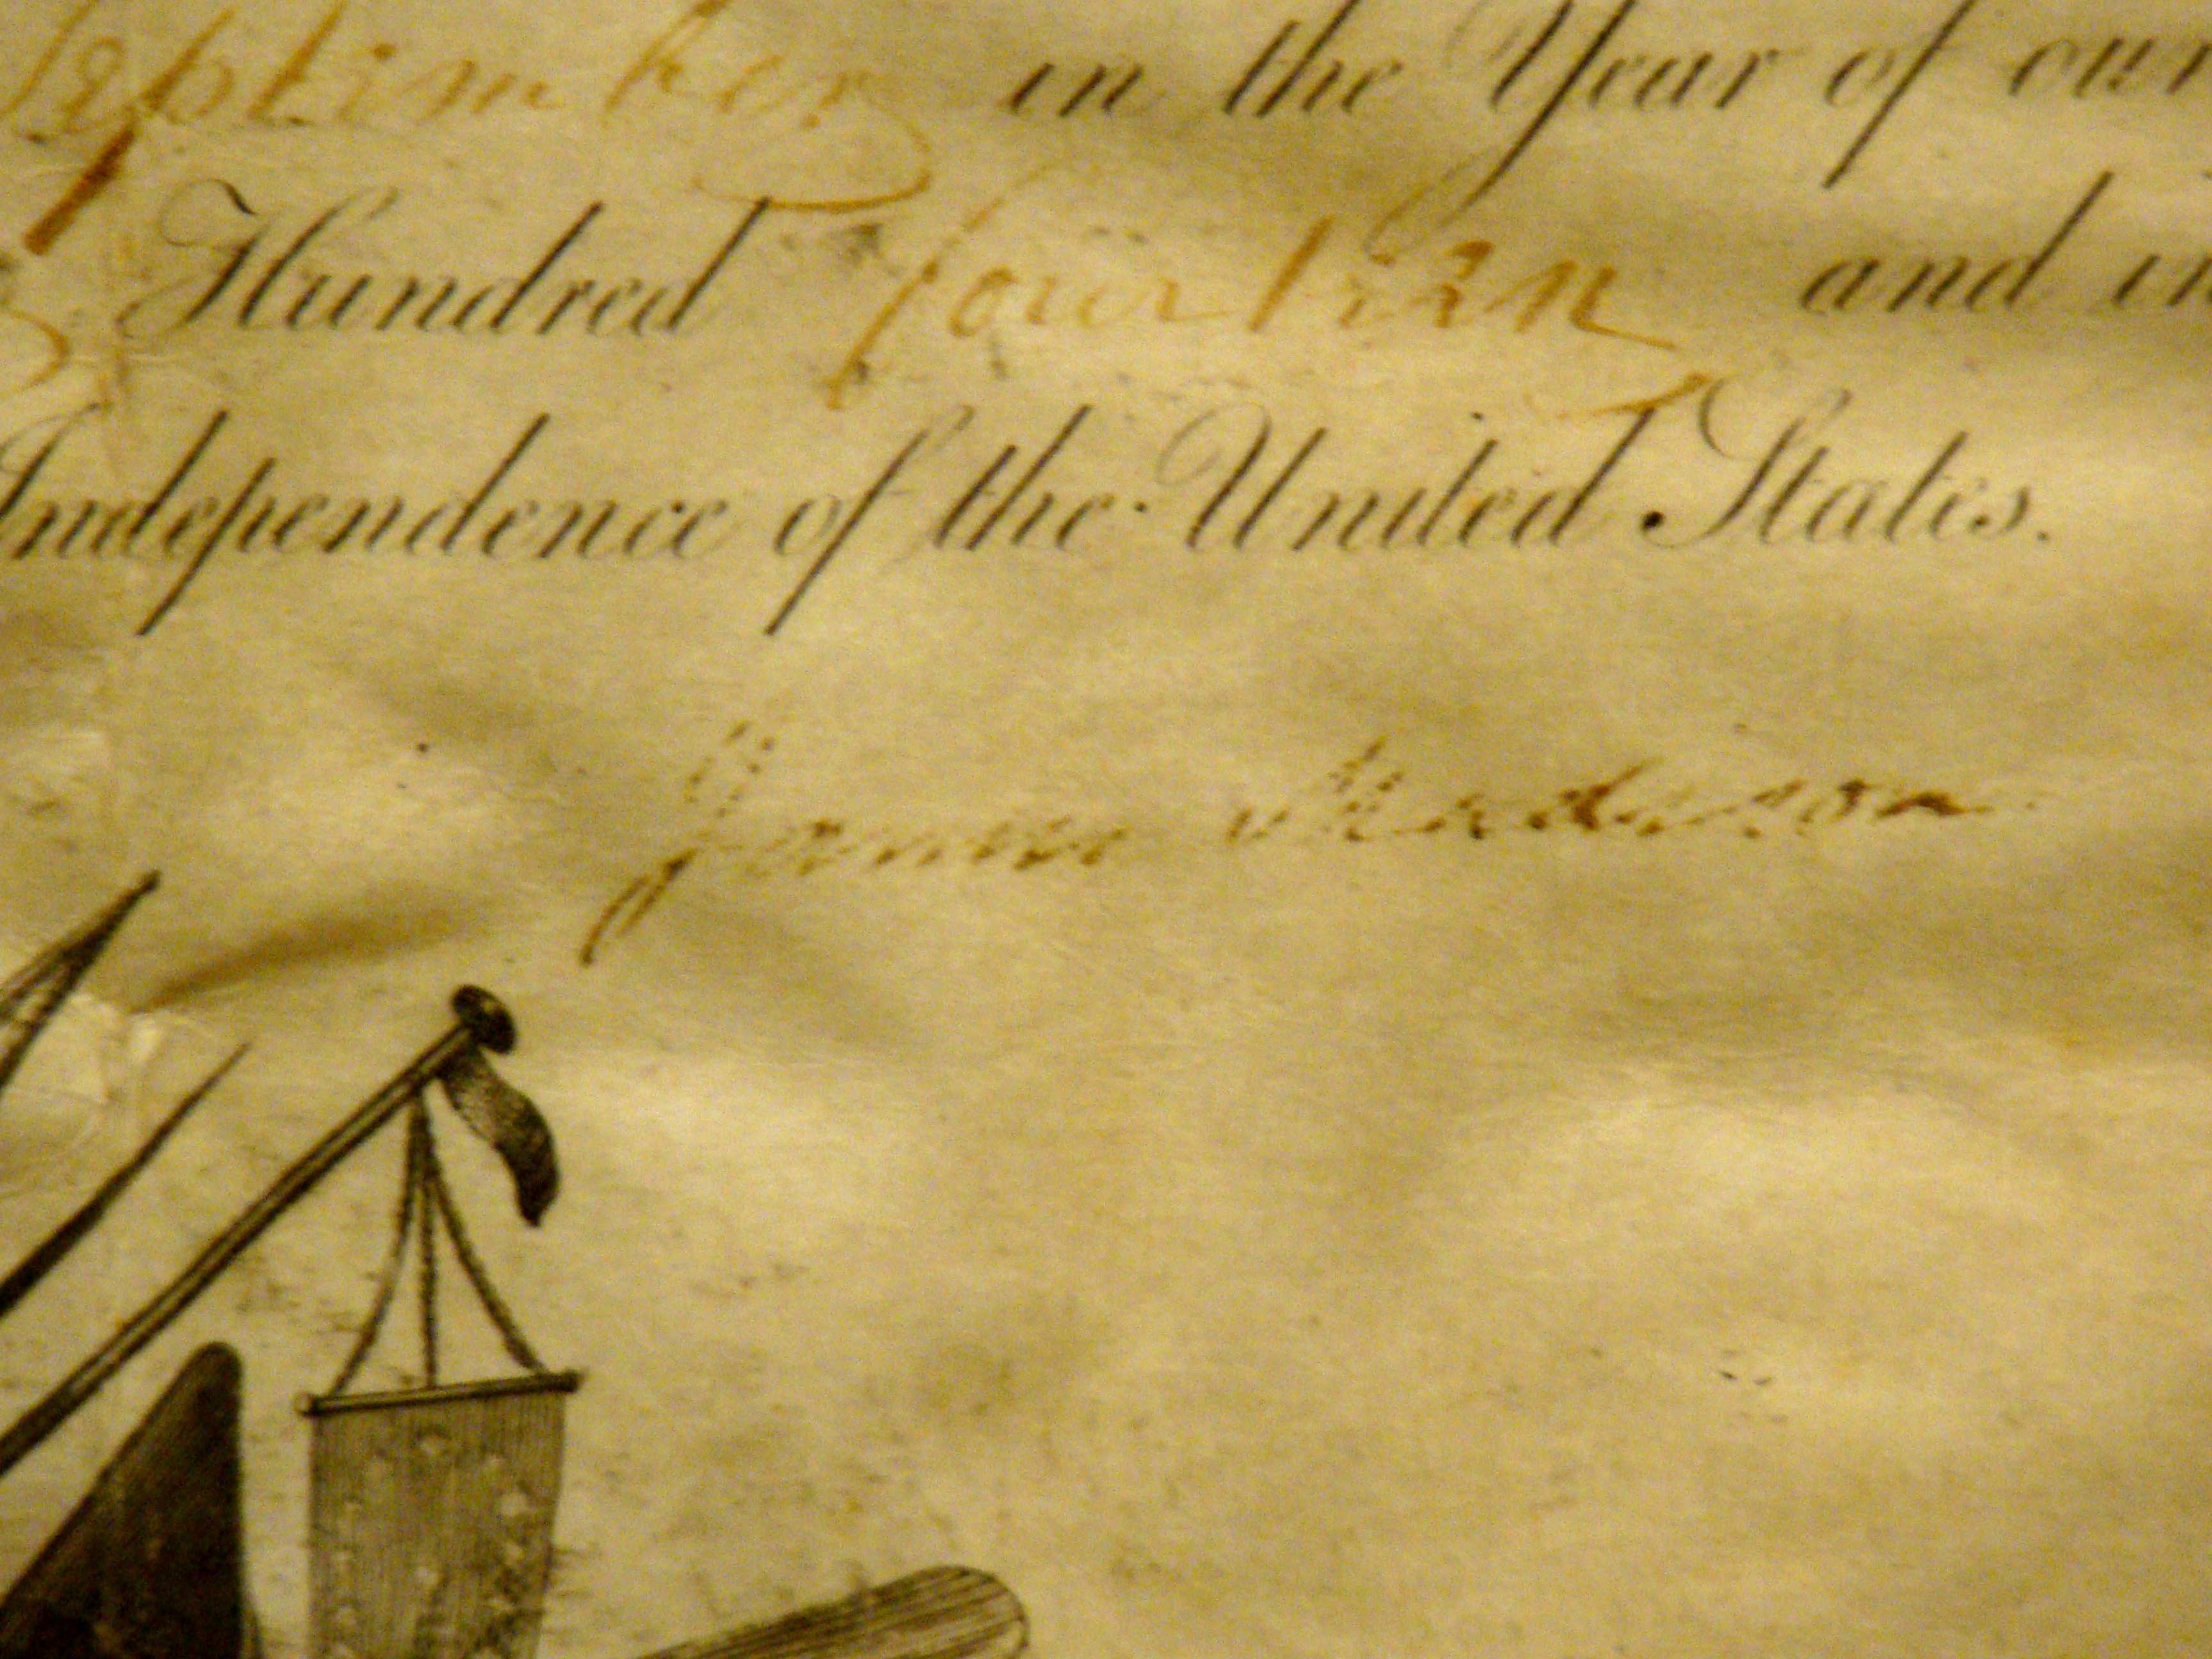 September in the Year of our
Hundred fourteen and in
Independence of the United States.
James Madison